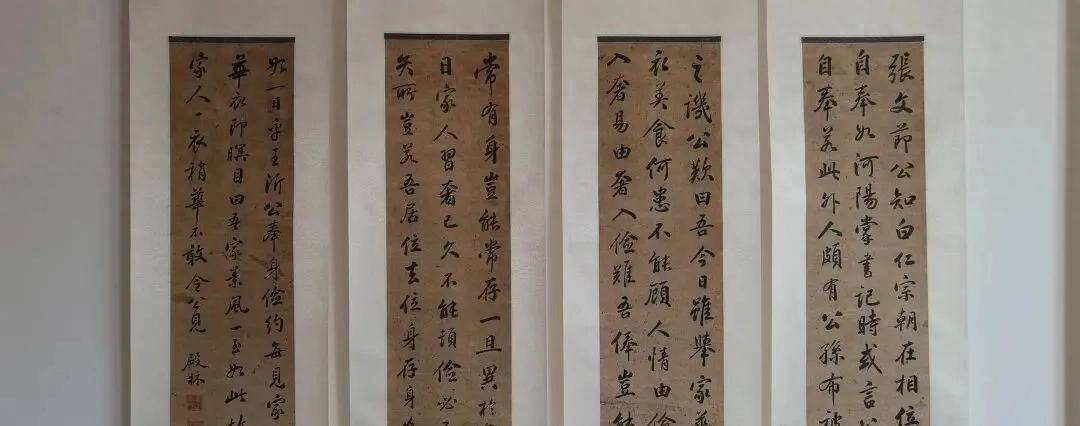 張文節公知白仁宗朝在相位
自奉如河陽掌書記時或言公
自奉若此外人頗有公孫布被
之譏公歎曰吾今日雖舉家
衣美食何患不能顧人情由儉
入奢易由奢入儉難吾俸豈能
常有身豈能常存一旦異於
日家人習奢已久不能頓儉必
失所豈若吾居位去位身存身
如一日乎王沂公奉身儉約每見家
華衣即瞑目曰吾家素風一至如此故
家人一衣稍華不敢令公見
殿林